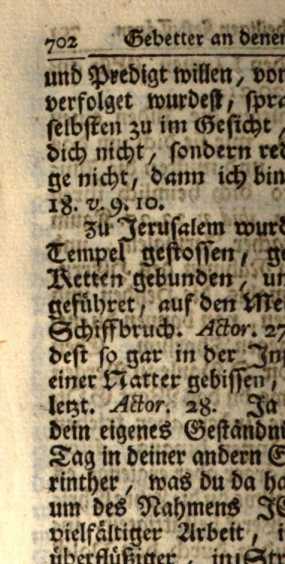 702 Gebetter an denen
und Predigt willen, von
verfolget wurdest, spra
selbsten zu im Gesicht,
dich nicht, sondern red
ge nicht, dann ich bin
18. v. 9. 10.
Zu Jerusalem wurd
Tempel gestossen, ge
Ketten gebunden, un
geführet, auf den Me
Schiffbruch. Actor. 27
dest so gar in der Inf
einer Natter gebissen,
letzt. Actor. 28. Ja
dein eigenes Geständnu
Tag in deiner andern E
rinther, was du da ha
um des Nahmens JE
vielfältiger Arbeit, i
überflüßiger, in Str